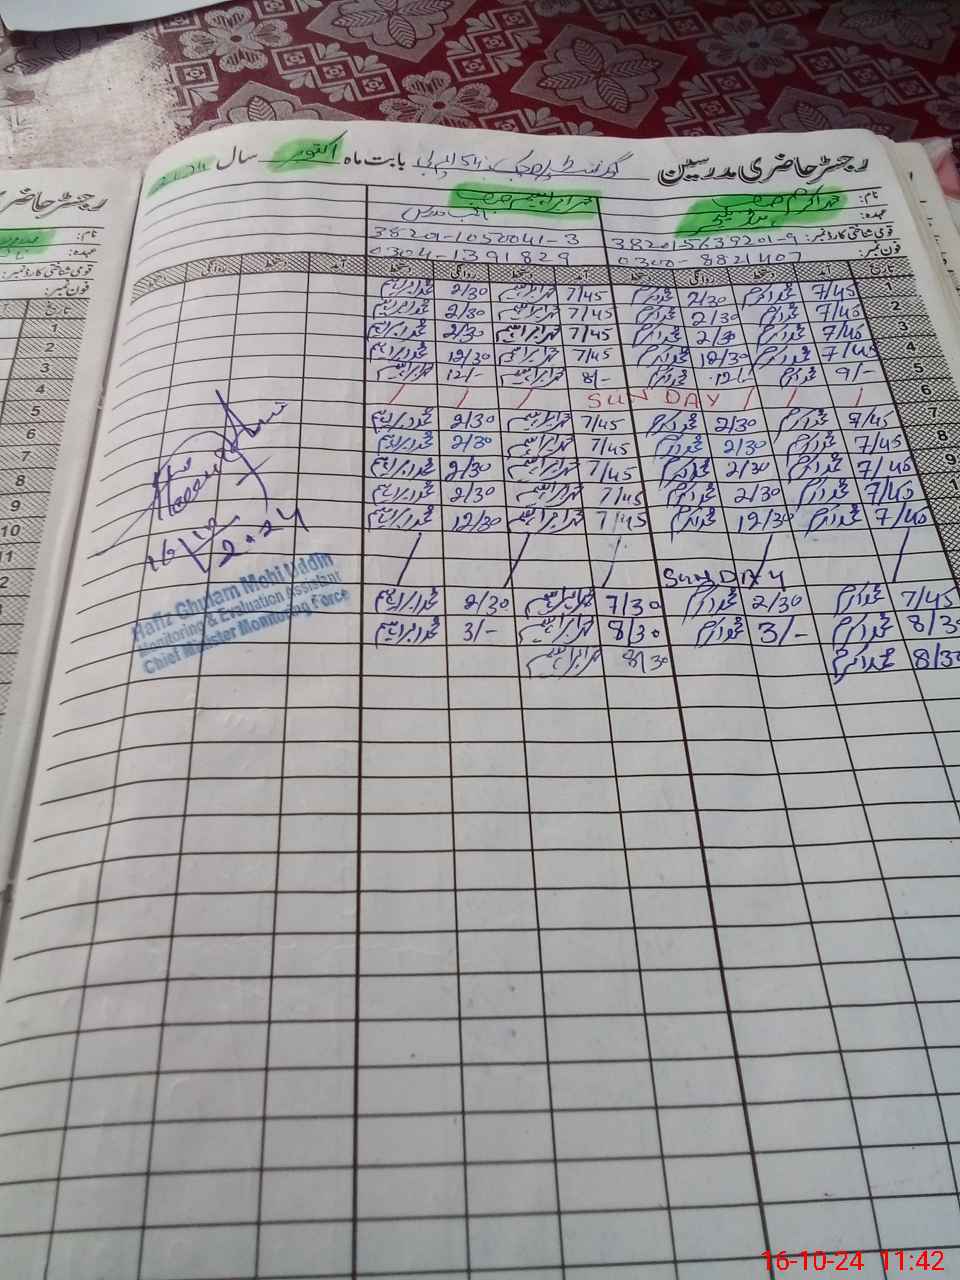 رجسٹر حاضری مدرسین بابت ماہ اکتوبر سال
نام: محمد اکرم صاحب محمد ابراہیم صاحب
عہدہ: نائب مدرس
قومی شناختی کارڈ نمبر: 382015639201-9 38201-1050041-3
فون نمبر: 0300-8821407 0304-1391829
تاریخ آمد دستخط روانگی دستخط آمد دستخط روانگی دستخط آمد دستخط روانگی دستخط
1 7/45 محمد اکرم 2/30 محمد اکرم 7/45 محمد ابراہیم 2/30 محمد ابراہیم
2 7/45 محمد اکرم 2/30 محمد اکرم 7/45 محمد ابراہیم 2/30 محمد ابراہیم
3 7/45 محمد اکرم 2/30 محمد اکرم 7/45 محمد ابراہیم 2/30 محمد ابراہیم
4 7/45 محمد اکرم 12/30 محمد اکرم 7/45 محمد ابراہیم 12/30 محمد ابراہیم
5 9/- محمد اکرم 12/- محمد اکرم 8/- محمد ابراہیم 12/- محمد ابراہیم
6 / / / SUNDAY / / /
7 7/45 محمد اکرم 2/30 محمد اکرم 7/45 محمد ابراہیم 2/30 محمد ابراہیم
8 7/45 محمد اکرم 2/30 محمد اکرم 7/45 محمد ابراہیم 2/30 محمد ابراہیم
9 7/45 محمد اکرم 2/30 محمد اکرم 7/45 محمد ابراہیم 2/30 محمد ابراہیم
7/45 محمد اکرم 2/30 محمد اکرم 7/45 محمد ابراہیم 2/30 محمد ابراہیم
7/45 محمد اکرم 12/30 محمد اکرم 7/45 محمد ابراہیم 12/30 محمد ابراہیم
/ / SUNDAY / / /
7/45 محمد اکرم 2/30 محمد اکرم 7/30 محمد ابراہیم 2/30 محمد ابراہیم
8/30 محمد اکرم 3/- محمد اکرم 8/30 محمد ابراہیم 3/- محمد ابراہیم
8/30 محمد اکرم 8/30 محمد ابراہیم
Hafiz Ghulam Mohi Uddin
Monitoring & Evaluation Assistant
Chief Minister Monitoring Force
رجسٹر حاضری
نام:
عہدہ:
قومی شناختی کارڈ نمبر:
فون نمبر:
تاریخ
1
2
3
4
5
6
7
8
9
10
11
16-10-24 11:42